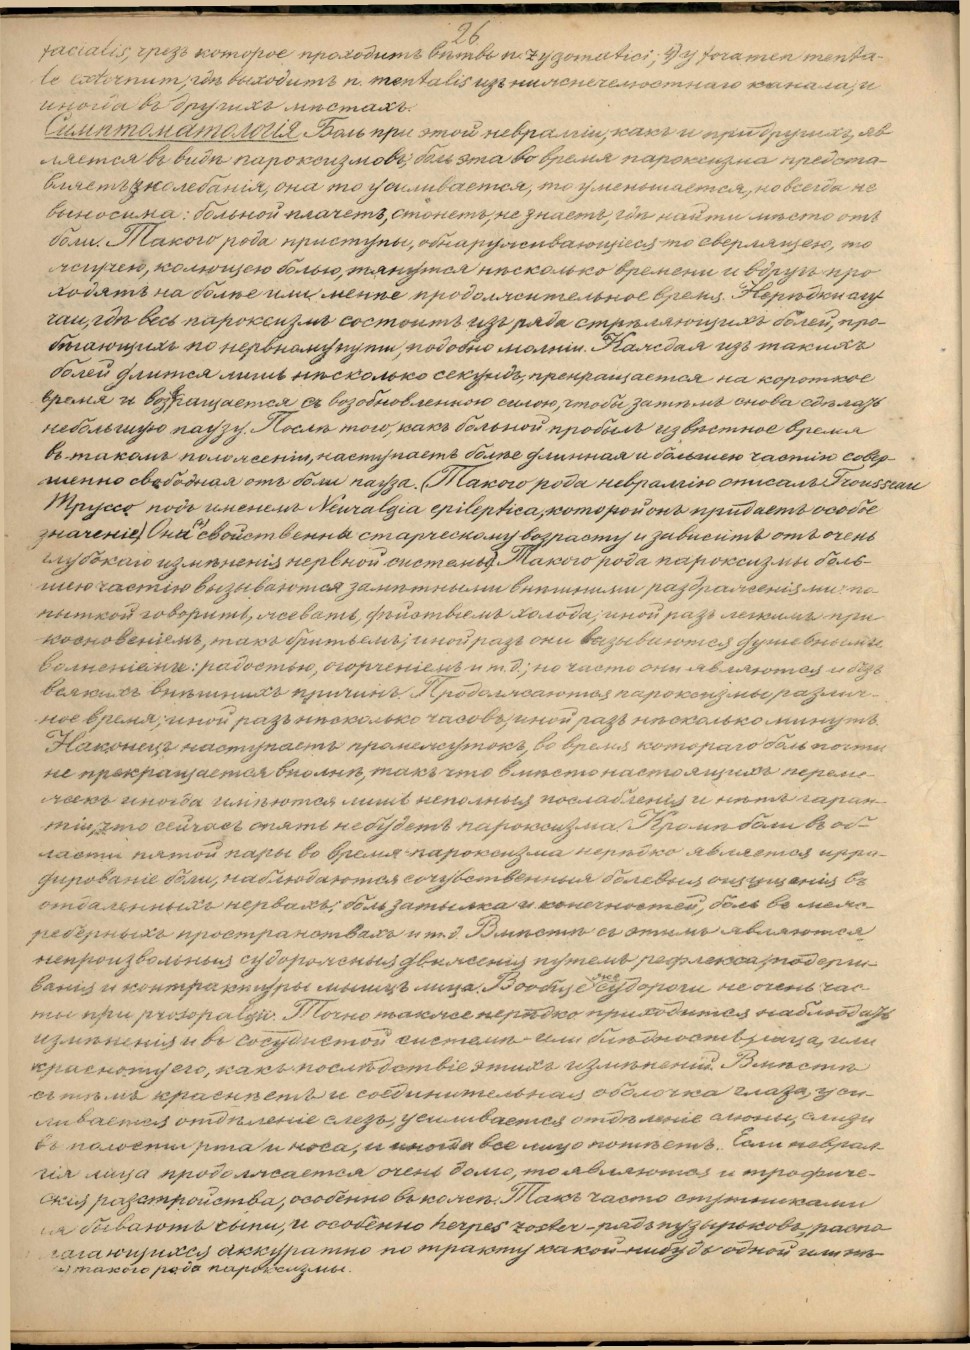 26
facialis, чрезъ которое проходитъ вѣтвь n. zygomatici; 4) у foramen menta-
le externum, гдѣ выходитъ n. mentalis изъ нижнечелюстнаго канала, и
иногда въ другихъ мѣстахъ.
Симптоматологія Боль при этой невралгіи, какъ и при другихъ, яв-
ляется въ видѣ пароксизмовъ; боль эта во время пароксизма предста-
вляетъ колебанія, она то усиливается, то уменьшается, но всегда не
выносима: больной плачетъ, стонетъ, не знаетъ, гдѣ найти мѣсто отъ
боли. Такого рода приступы, обнаруживающіеся то сверлящею, то
жгучею, колющею болью, тянутся нѣсколько времени и вдругъ про
ходятъ на болѣе или менѣе продолжительное время. Нерѣдки слу
чаи, гдѣ весь пароксизмъ состоитъ изъ ряда стрѣляющихъ болей, про-
бѣгающихъ по нервному пути, подобно молніи. Каждая изъ такихъ
болей длится лишь нѣсколько секундъ, прекращается на короткое
время и возвращается съ возобновленною силою, чтобы затѣмъ снова сдѣлать
небольшую паузу. Послѣ того, какъ больной пробылъ извѣстное время
въ такомъ положеніи, наступаетъ болѣе длинная и большею частію совер-
шенно свободная отъ боли пауза. (Такого рода невралгію описалъ Trousseau
Труссо подъ именемъ Neuralgia epileptica, которой онъ придаетъ особое
значеніе) Они свойственны старческому возрасту и зависитъ отъ очень
глубокаго измѣненія нервной системы) Такого рода пароксизмы боль-
шею частію вызываются замѣтными внѣшними раздраженіями: по
пыткой говорить, жевать, дѣйствіемъ холода, иной разъ легкимъ при
косновеніемъ, такъ бритьемъ; иной разъ они вызываются душевными
волненіемъ: радостью, огорченіемъ и т. д.; но часто они являются и безъ
всякихъ внѣшнихъ причинъ. Продолжаются пароксизмы различ-
ное время; иной разъ нѣсколько часовъ, иной разъ нѣсколько минутъ.
Наконецъ наступаетъ промежутокъ, во время котораго боль почти
не прекращается вполнѣ, такъ что вмѣсто настоящихъ переме-
жекъ иногда имѣются лишь неполныя послабленія и нѣтъ гаран-
тіи, что сейчасъ опять не будетъ пароксизма. Кромѣ боли въ об-
ласти пятой пары во время пароксизма нерѣдко является ирра-
дированіе боли, наблюдаются сочувственныя болевыя ощущенія въ
отдаленныхъ нервахъ: боль затылка и конечностей, боль въ меж-
реберныхъ пространствахъ и т.д. Вмѣстѣ съ этимъ являются
непроизвольныя судорожныя движенія путемъ рефлекса, подерги-
ванія и контрактуры мышцъ лица. Вообще же судороги не очень час-
ты при prosopalgii. Точно также нерѣдко приходится наблюдать
измѣненія и въ сосудистой системѣ или блѣдность лица, или
красноту его, какъ послѣдствіе этихъ измѣненій. Вмѣстѣ
съ тѣмъ краснѣетъ и соединительная оболочка глаза, уси-
ливается отдѣленіе слезъ, усиливается отдѣленіе слюны, слизи
въ полости рта и носа, и иногда все лицо потѣетъ. Если неврал-
гія лица продолжается очень долго, то являются и трофиче-
скія разстройства, особенно въ кожѣ. Такъ часто спутниками
ея бываютъ сыпи, и особенно herpes zoster - рядъ пузырьковъ, распо
лагающихся аккуратно по тракту какой-нибудь одной или нѣ-
такого рода пароксизмы.